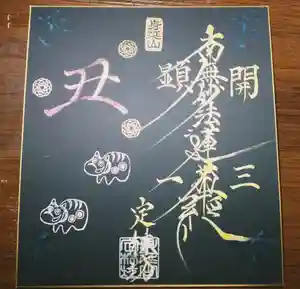 身延山
開三顕一
南無妙法蓮華経
定
丑